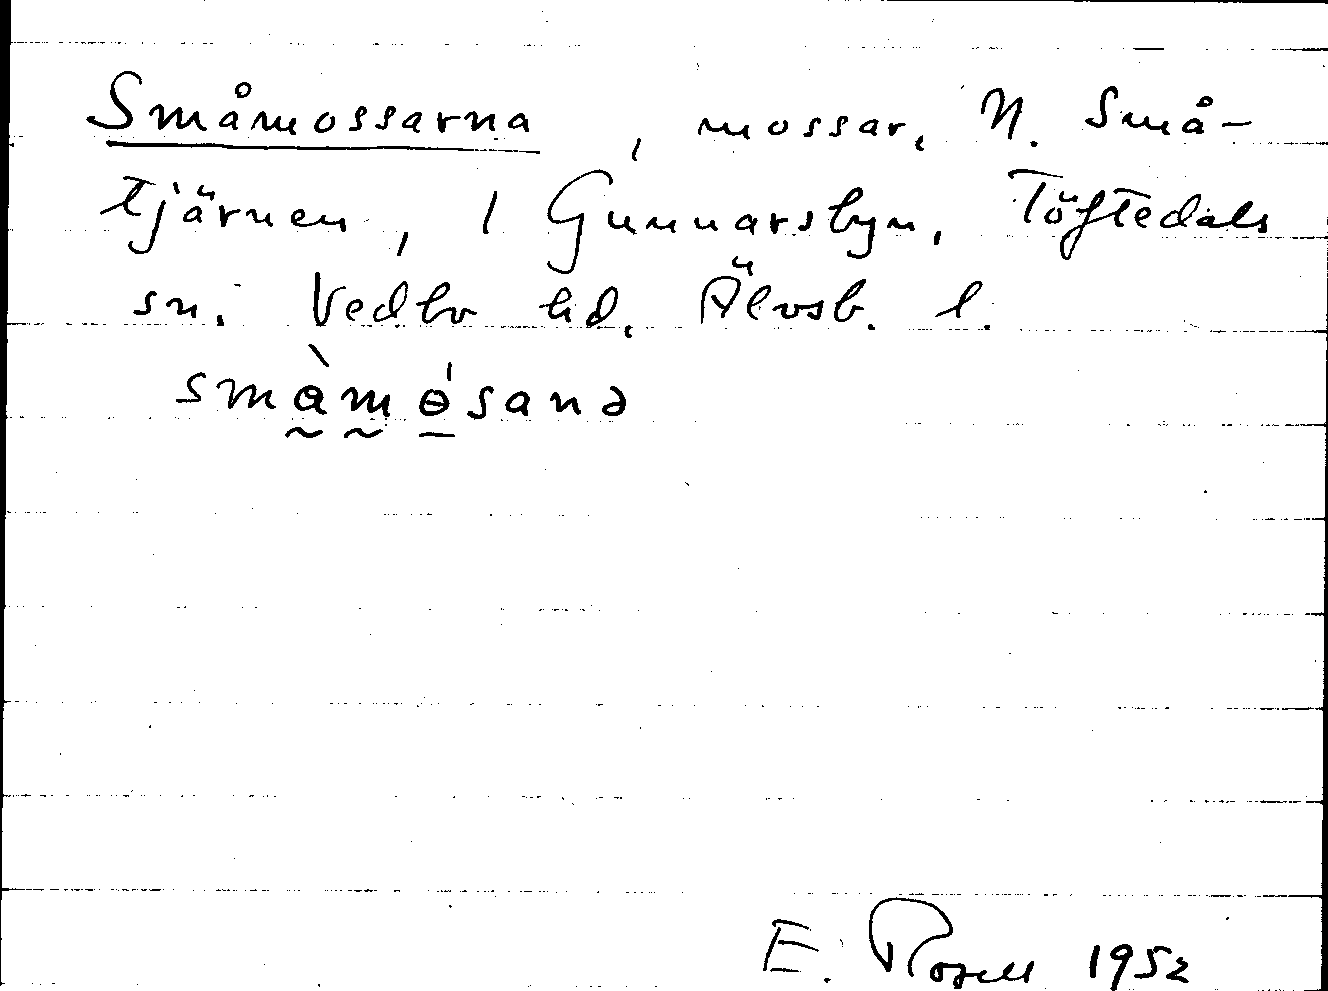 Småmossarna, mossar, N. Små-
tjärnen, 1 Gunnarsbyn, Töftedals
sn. Vedbo hd. Älvsb. l.
smàmɵ́sanə
E. Rosell 1952